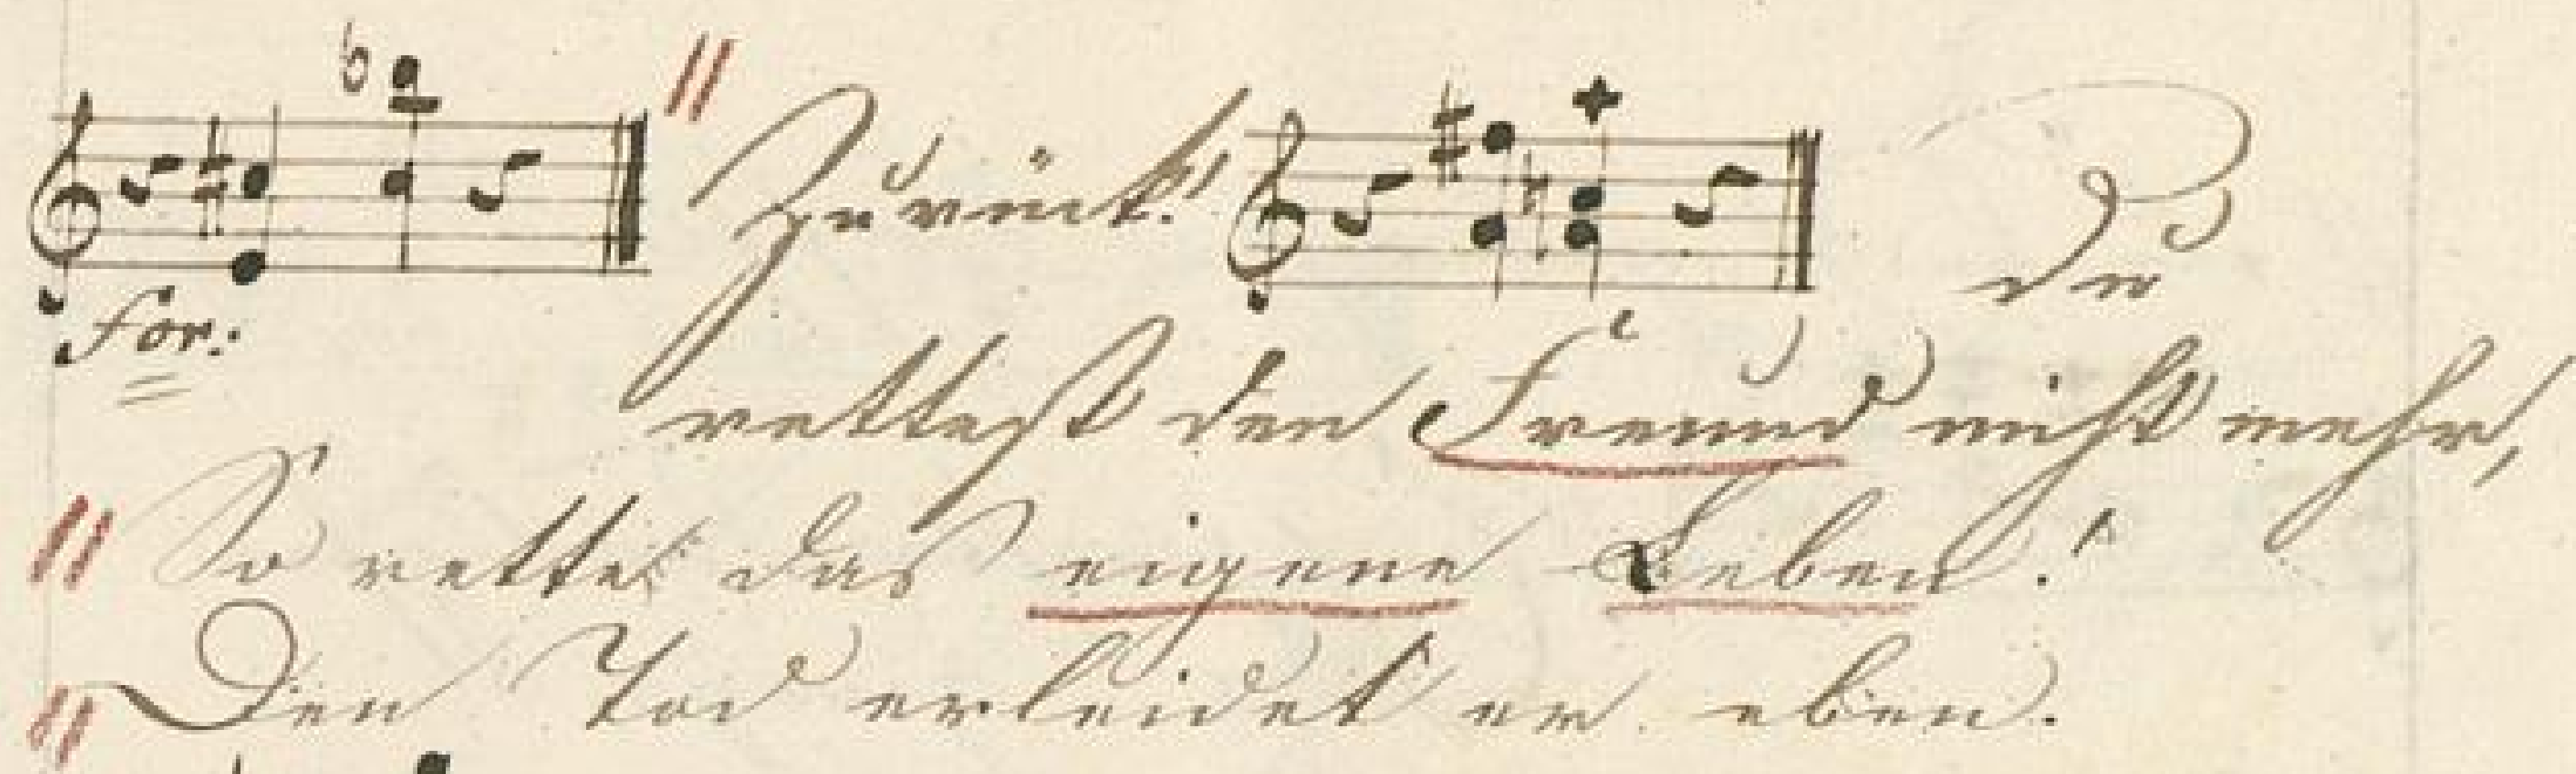 Zurück! du
for:
rettest den Freund nicht mehr,
So rette das eigene Leben!
Den Tod erleidet er eben.